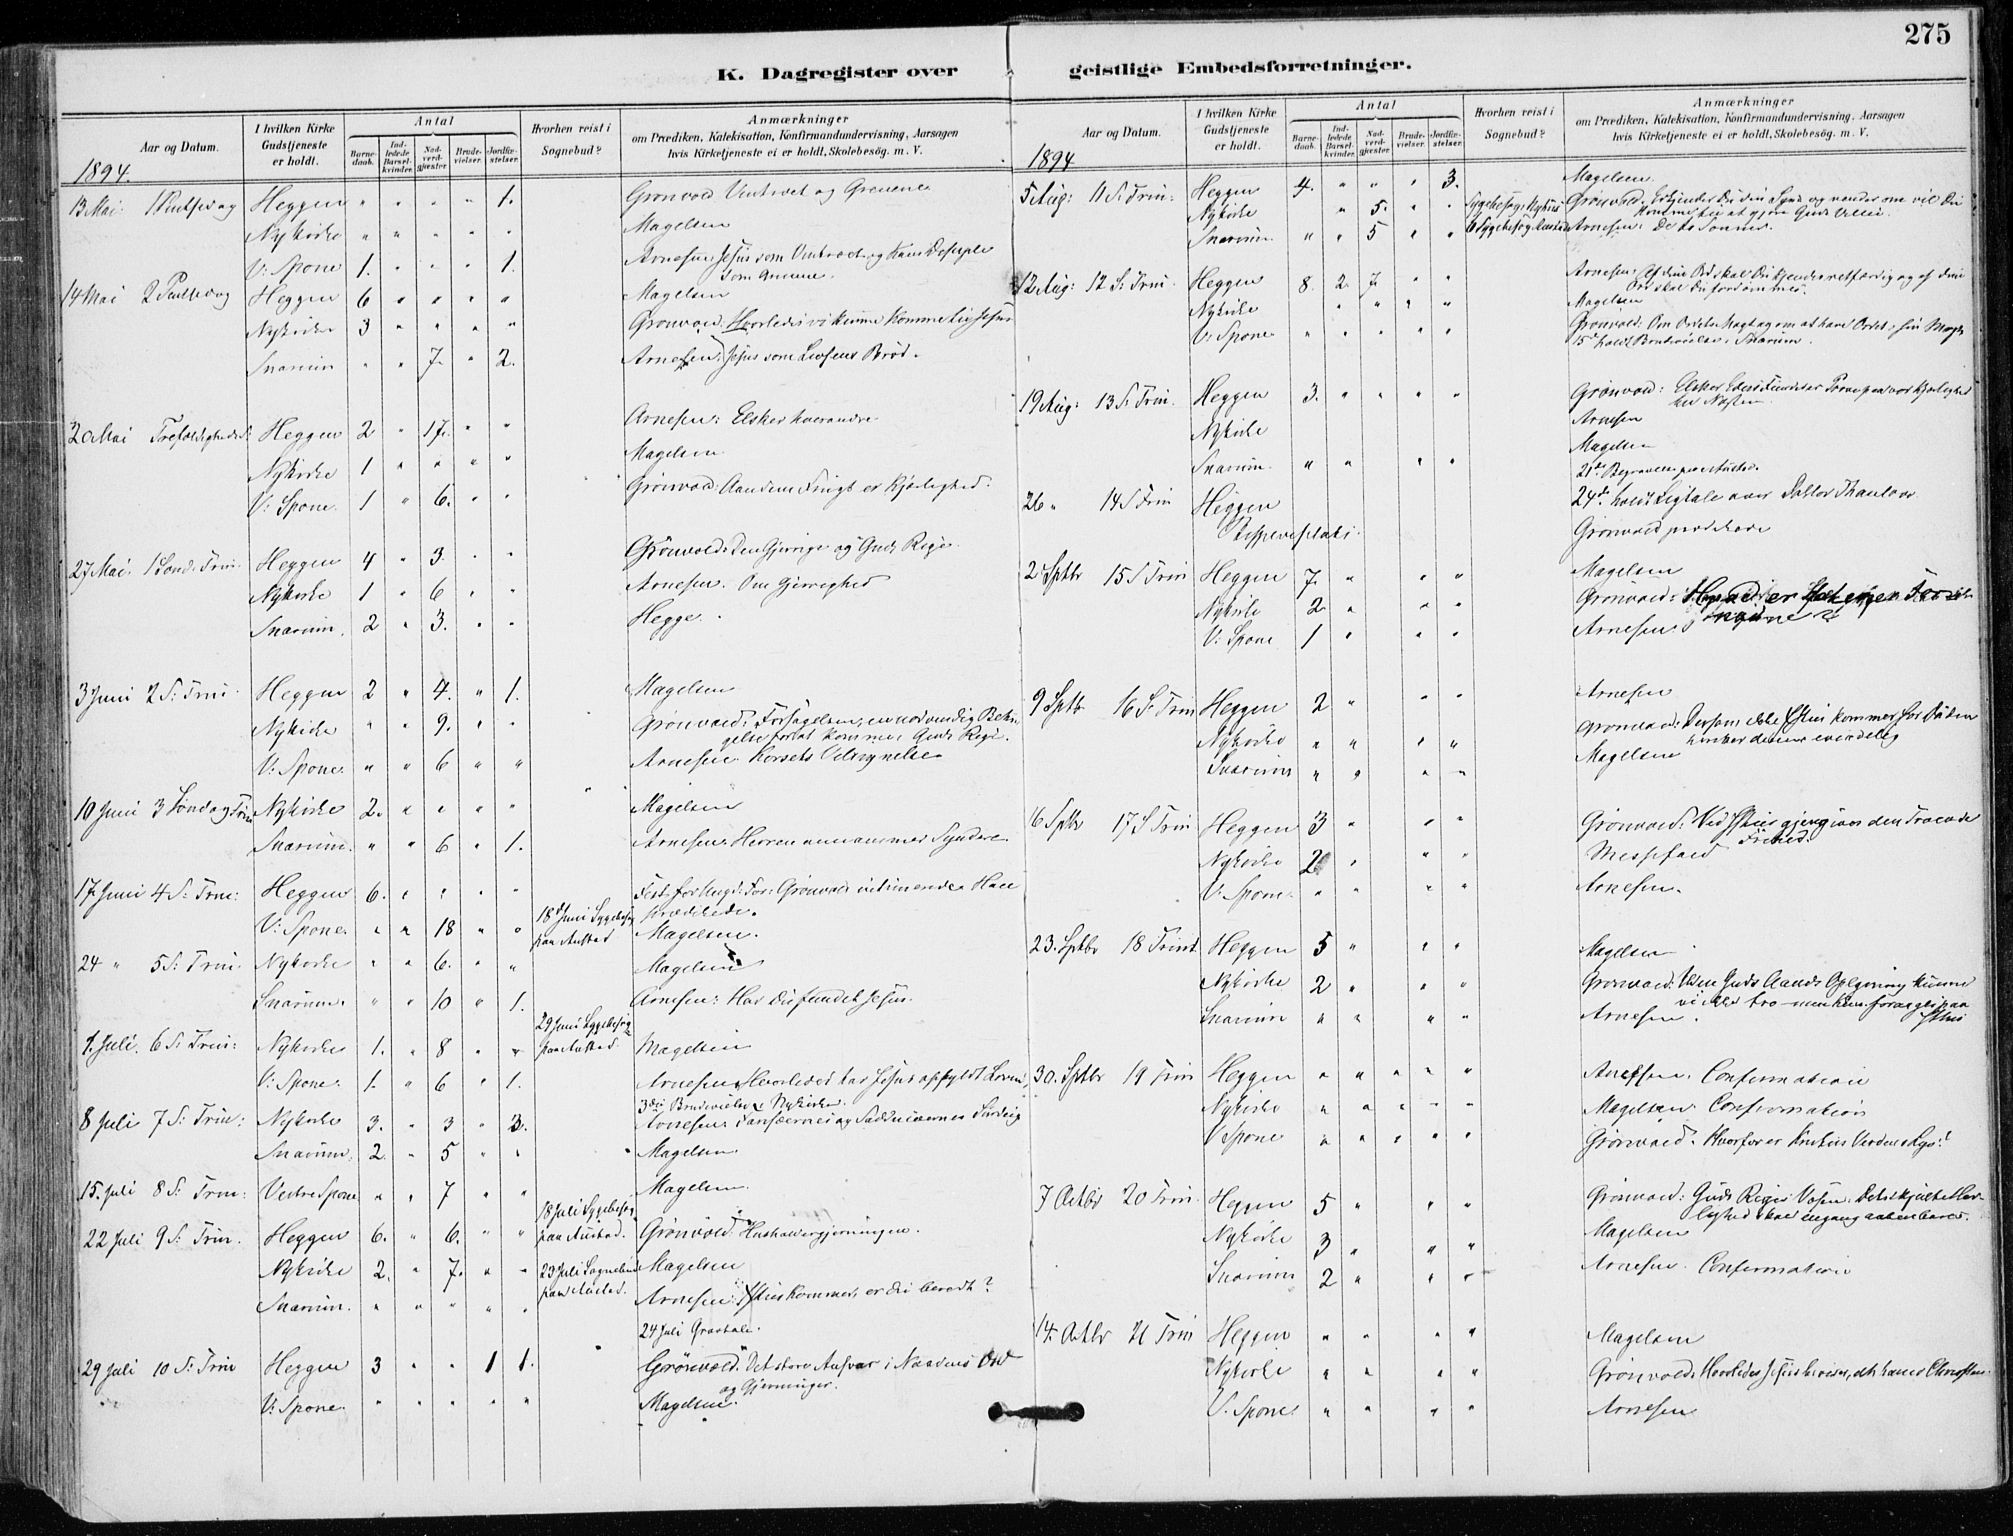 275
K. Dagregister over geistlige Embedsforretninger.
Aar og Datum. I hvilken Kirke Gudstjeneste er holdt. Antal Barnedaab. Indledede Barselkvinder. Nadverdgjæster. Brudevielser. Jordfæstelser. Hvorhen reist i Sognebud? Anmærkninger om Prædiken, Katekisation, Konfirmandundervisning, Aarsagen hvis Kirketjeneste ei er holdt, Skolebesøg. m. V.
1894.
13 Mai 1 Pintsedag Heggen " " " " 1. Grønvold Vintræet og Grenene
Nykirke " " " " " Magelsen
V: Spone 1. " " " 1. Arnesen: Jesus som Vintræet og hans Disciple
som Grenene.
14 Mai 2 Pintsedag Heggen 6 " " " " Magelsen
Nykirke 3 " " " " Grønvold: Hvorledes vi kunne komme til Jesus
Snarum " " 7. " 2. Arnesen: Jesus som Livsens Brød.
20 Mai Trefoldigheds S: Heggen 2 " 17. " " Arnesen: Elsker hverandre
Nykirke 1 " " " " Magelsen
V: Spone. 1 " 6. " " Grønvold: Aandens Frugt er Kjærlighed.
27 Mai. 1 Sønd. Trin. Heggen 4 " 3. " " Grønvold: Den Gjerrige og Guds Rige.
Nykirke 1 " 6 " " Arnesen. Om Gjerrighed
Snarum. 2 " 3. " " Hegge.
3 Juni 2 S: Trin. Heggen 2 " 4. " 1. Magelsen
Nykirke " " 9. " " Grønvold: Forsagelsen, en nødvendig Betin
gelse for at komme i Guds Rige.
V: Spone. " " 6 " " Arnesen. Korsets Velsignelse
10 Juni 3 Søndag Trin Nykirke 2. " " " " Magelsen
Snarum. " " 6 " 1. Arnesen: Herren annammer Syndere.
17 Juni 4 S: Trin: Heggen 6. " " " " Grønvold Han
prædikede.
V: Spone. " " 18 " " 18 Juni Sygebesøg paa Austad Magelsen.
24 " 5 S: Trin. Nykirke " " 6. " " Magelsen
Snarum. " " 10 " 1. Arnesen: Har du fundet Jesus.
29 Juni Sygebesøg paa Austad.
1. Juli. 6 S: Trin: Nykirke 1. " 8 " " Magelsen
V: Spone. 1. " 6 " 1. Arnesen: Hvorledes har Jesus opfyldt Loven
3die Brudevielse i Nykirke.
8 Juli 7 S: Trin: Nykirke 3. " 3 " 3. Arnesen: Farisæernes og Sadducæernes Surdeig
Snarum. 2. " 5 " " Magelsen.
15. Juli 8 S: Trin: Vestre Spone " " 7 " " Magelsen.
18 Juli Sygebesøg paa Austad.
22 Juli 9 S: Trin. Heggen 6. " 6. " " Grønvold: Husholdergjerningen.
Nykirke 2. " 7. " " 23 Juli Sognebud paa Austad. Magelsen
Snarum. " " " " " Arnesen: Jesus kommer, er du beredt?
24 Juli Gravtale.
29 Juli 10 S: Trin Heggen 3 " " 1 1. Grønvold. Det store Ansvar i Naadens Ord
og Gjerninger.
V: Spone. " " " " " Magelsen.
Aar og Datum. I hvilken Kirke Gudstjeneste er holdt. Antal Barnedaab. Indledede Barselkvinder. Nadverdgjæster. Brudevielser. Jordfæstelser. Hvorhen reist i Sognebud? Anmærkninger om Prædiken, Katekisation, Konfirmandundervisning, Aarsagen hvis Kirketjeneste ei er holdt, Skolebesøg. m. V.
1894
5 Aug: 11 S: Trin: Heggen 4. " " " 3. Magelsen.
Nykirke " 5. " " Grønvold. Erkjender Du din Synd og vender om vil Du
komme til at gjøre Guds Villie.
Snarum " " 5 " " Arnesen: De to Sønner.
12 Aug: 12 S: Trin: Heggen 8. 2. 7. " " Arnesen: Af dine Ord skal Du kjendes retfærdig og af dine
Ord skal Du fordømmes.
Nykirke " " " " Magelsen
V: Spone " " " " " Grønvold: Om Ordets Magt og om at have Ordet i sin Magt
15de holdt Brudevielse i Snarum.
19 Aug: 13 S: Trin. Heggen 3. " " " " Grønvold: Elsker
til Næsten.
Nykirke Arnesen
Snarum. " " " " Magelsen
21de Begravelse paa Austad.
26 " 14 S Trin Heggen 24de holdt Ligtale over
Bispevisitats. Grønvold prædikede
2 Sptbr 15 S Trin Heggen 7. " " " Magelsen
Nykirke 2 " " " Grønvold:
V: Spone 1 " " " Arnesen
9 Sptbr 16 S: Trin Heggen 2 " " " Arnesen
Nykirke " " " " Grønvold: Dersom ikke Jesus kommer for Døden
Snarum " " " " Magelsen
16 Sptbr 17 S Trin Heggen 3 " " " Grønvold: Ved Jesus gjengives den Troende
Frihed.
Nykirke 2 " " " Messefald
V: Spone. " " " " Arnesen.
23. Sptbr 18 Trinit Heggen 5 " " " Magelsen
Nykirke 2 " " " Grønvold: Uden Guds Aands Oplysning kunne
vi ikke tro men kun forarges paa
Jesus
Snarum " " " " Arnesen.
30. Sptbr 19 Trin Heggen " " " " " Arnesen. Confirmation
Nykirke " " " " " Magelsen. Confirmation
V Spone " " " " " Grønvold. Hvorfor er Kristus Verdens Lys?
7 Octbr 20 Trin. Heggen 5 " " " Grønvold: Guds Riges Væsen. Det skjulte Her
lighed skal engang aabenbares.
Nykirke 3 " " " Magelsen
Snarum 2 " " " Arnesen. Confirmation
14. Octbr 21 Trin Heggen " " " " Magelsen
Nykirke " " " " Grønvold. Hvorledes Jesus beviser, at han er Christus.
V. Spone. " " " " Arnesen